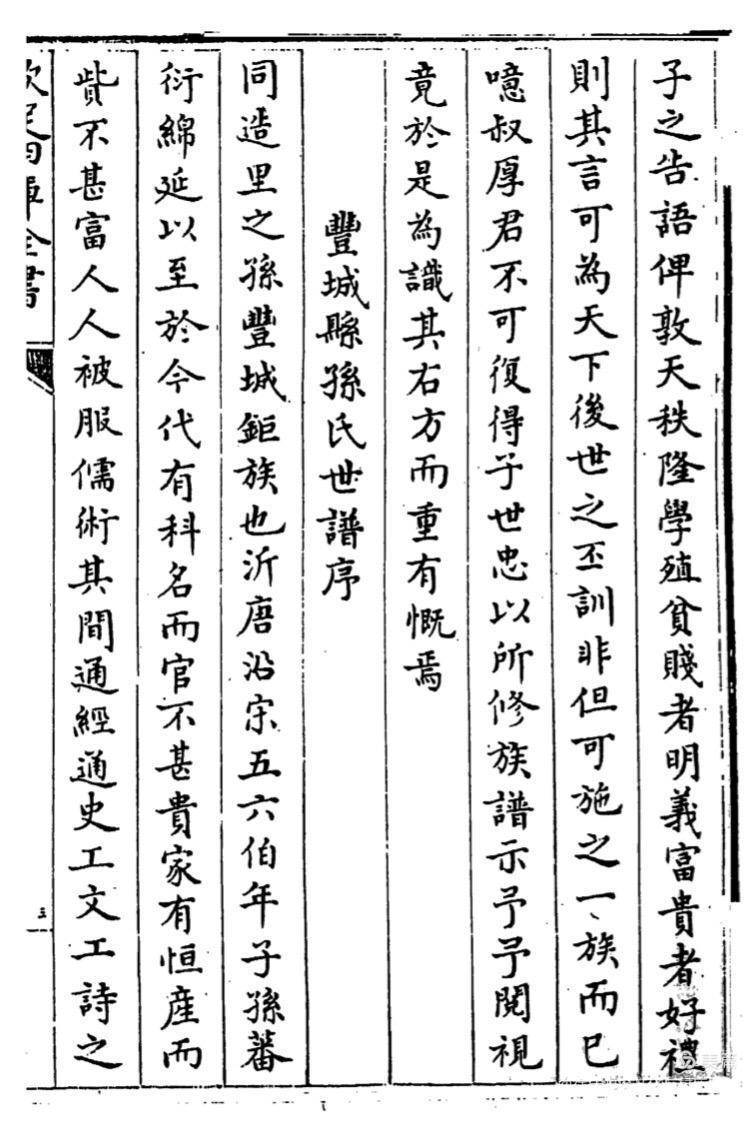 子之告語俾敦天秩隆學殖貧賤者明義富貴者好禮
則其言可為天下後世之丕訓非但可施之一族而已
噫叔厚君不可復得予世忠以所修族譜示予予閱視
竟於是為識其右方而重有慨焉
豐城縣孫氏世譜序
同造里之孫豐城鉅族也沂唐沿宋五六伯年子孫蕃
衍綿延以至於今代有科名而官不甚貴家有恒産而
貲不甚富人人被服儒術其間通經通史工文工詩之
欽定四庫全書
三